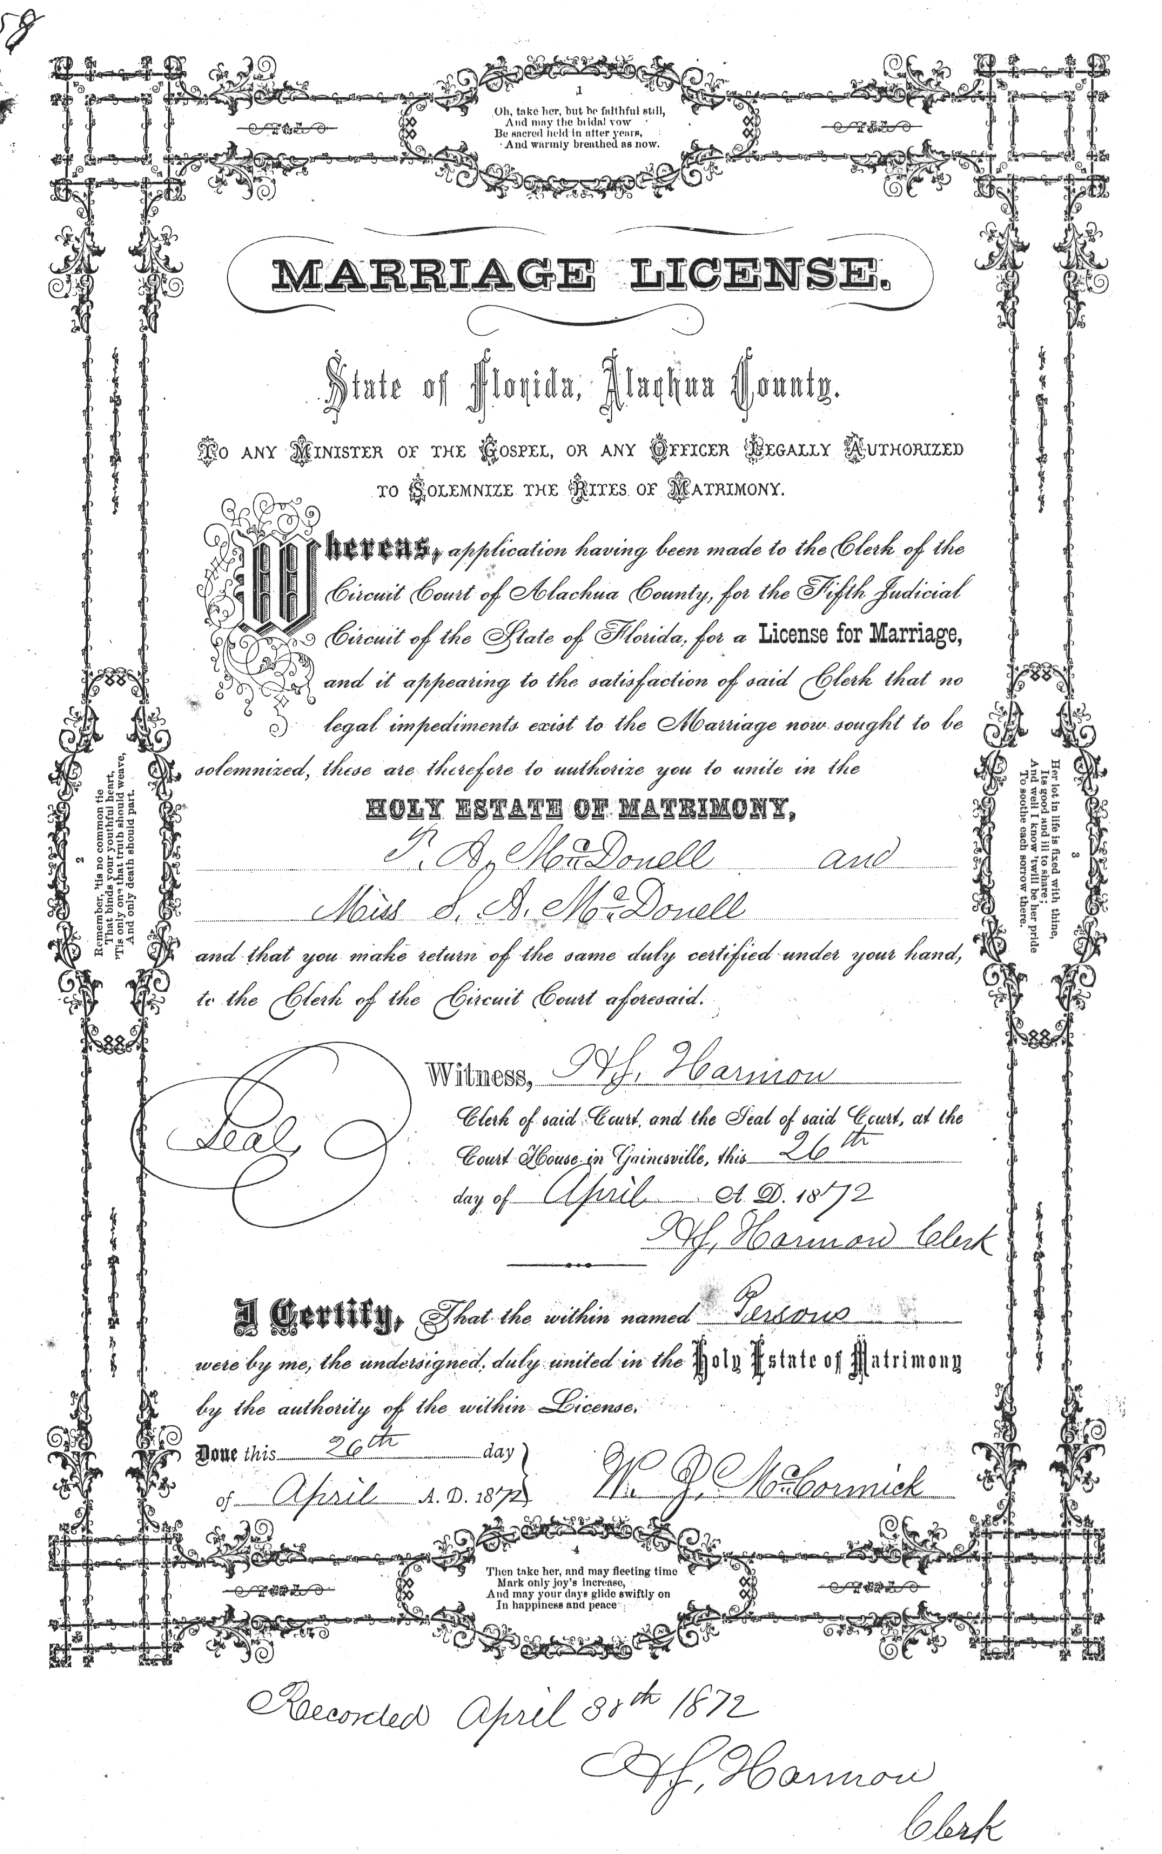 58
1
Oh, take her, but be faithful still,
And may the bridal vow
Be sacred held in after years,
And warmly breathed as now.
MARRIAGE LICENSE.
State of Florida, Alachua County.
To any Minister of the Gospel, or any Officer Legally Authorized
to Solemnize the Rites of Matrimony.
Whereas, application having been made to the Clerk of the
Circuit Court of Alachua County, for the Fifth Judicial
Circuit of the State of Florida, for a License for Marriage,
and it appearing to the satisfaction of said Clerk that no
legal impediments exist to the Marriage now sought to be
solemnized, these are therefore to authorize you to unite in the
HOLY ESTATE OF MATRIMONY,
T. A. McDonell and
Miss S. A. McDonell
and that you make return of the same duly certified under your hand,
to the Clerk of the Circuit Court aforesaid.
2
Remember, 'tis no common tie
That binds your youthful heart,
'Tis only one that truth should weave,
And only death should part.
3
Her lot in life is fixed with thine,
Its good and ill to share;
And well I know 'twill be her pride
To soothe each sorrow there.
Seal
Witness, H. J. Harmon
Clerk of said Court, and the Seal of said Court, at the
Court House in Gainesville, this 26th
day of April A. D. 1872
H. J. Harmon Clerk
I Certify, That the within named Persons
were by me, the undersigned, duly united in the Holy Estate of Matrimony
by the authority of the within License.
Done this 26th day
of April A. D. 1872
W. J. McCormick
4
Then take her, and may fleeting time
Mark only joy's increase,
And may your days glide swiftly on
In happiness and peace
Recorded April 30th 1872
H. J. Harmon
Clerk